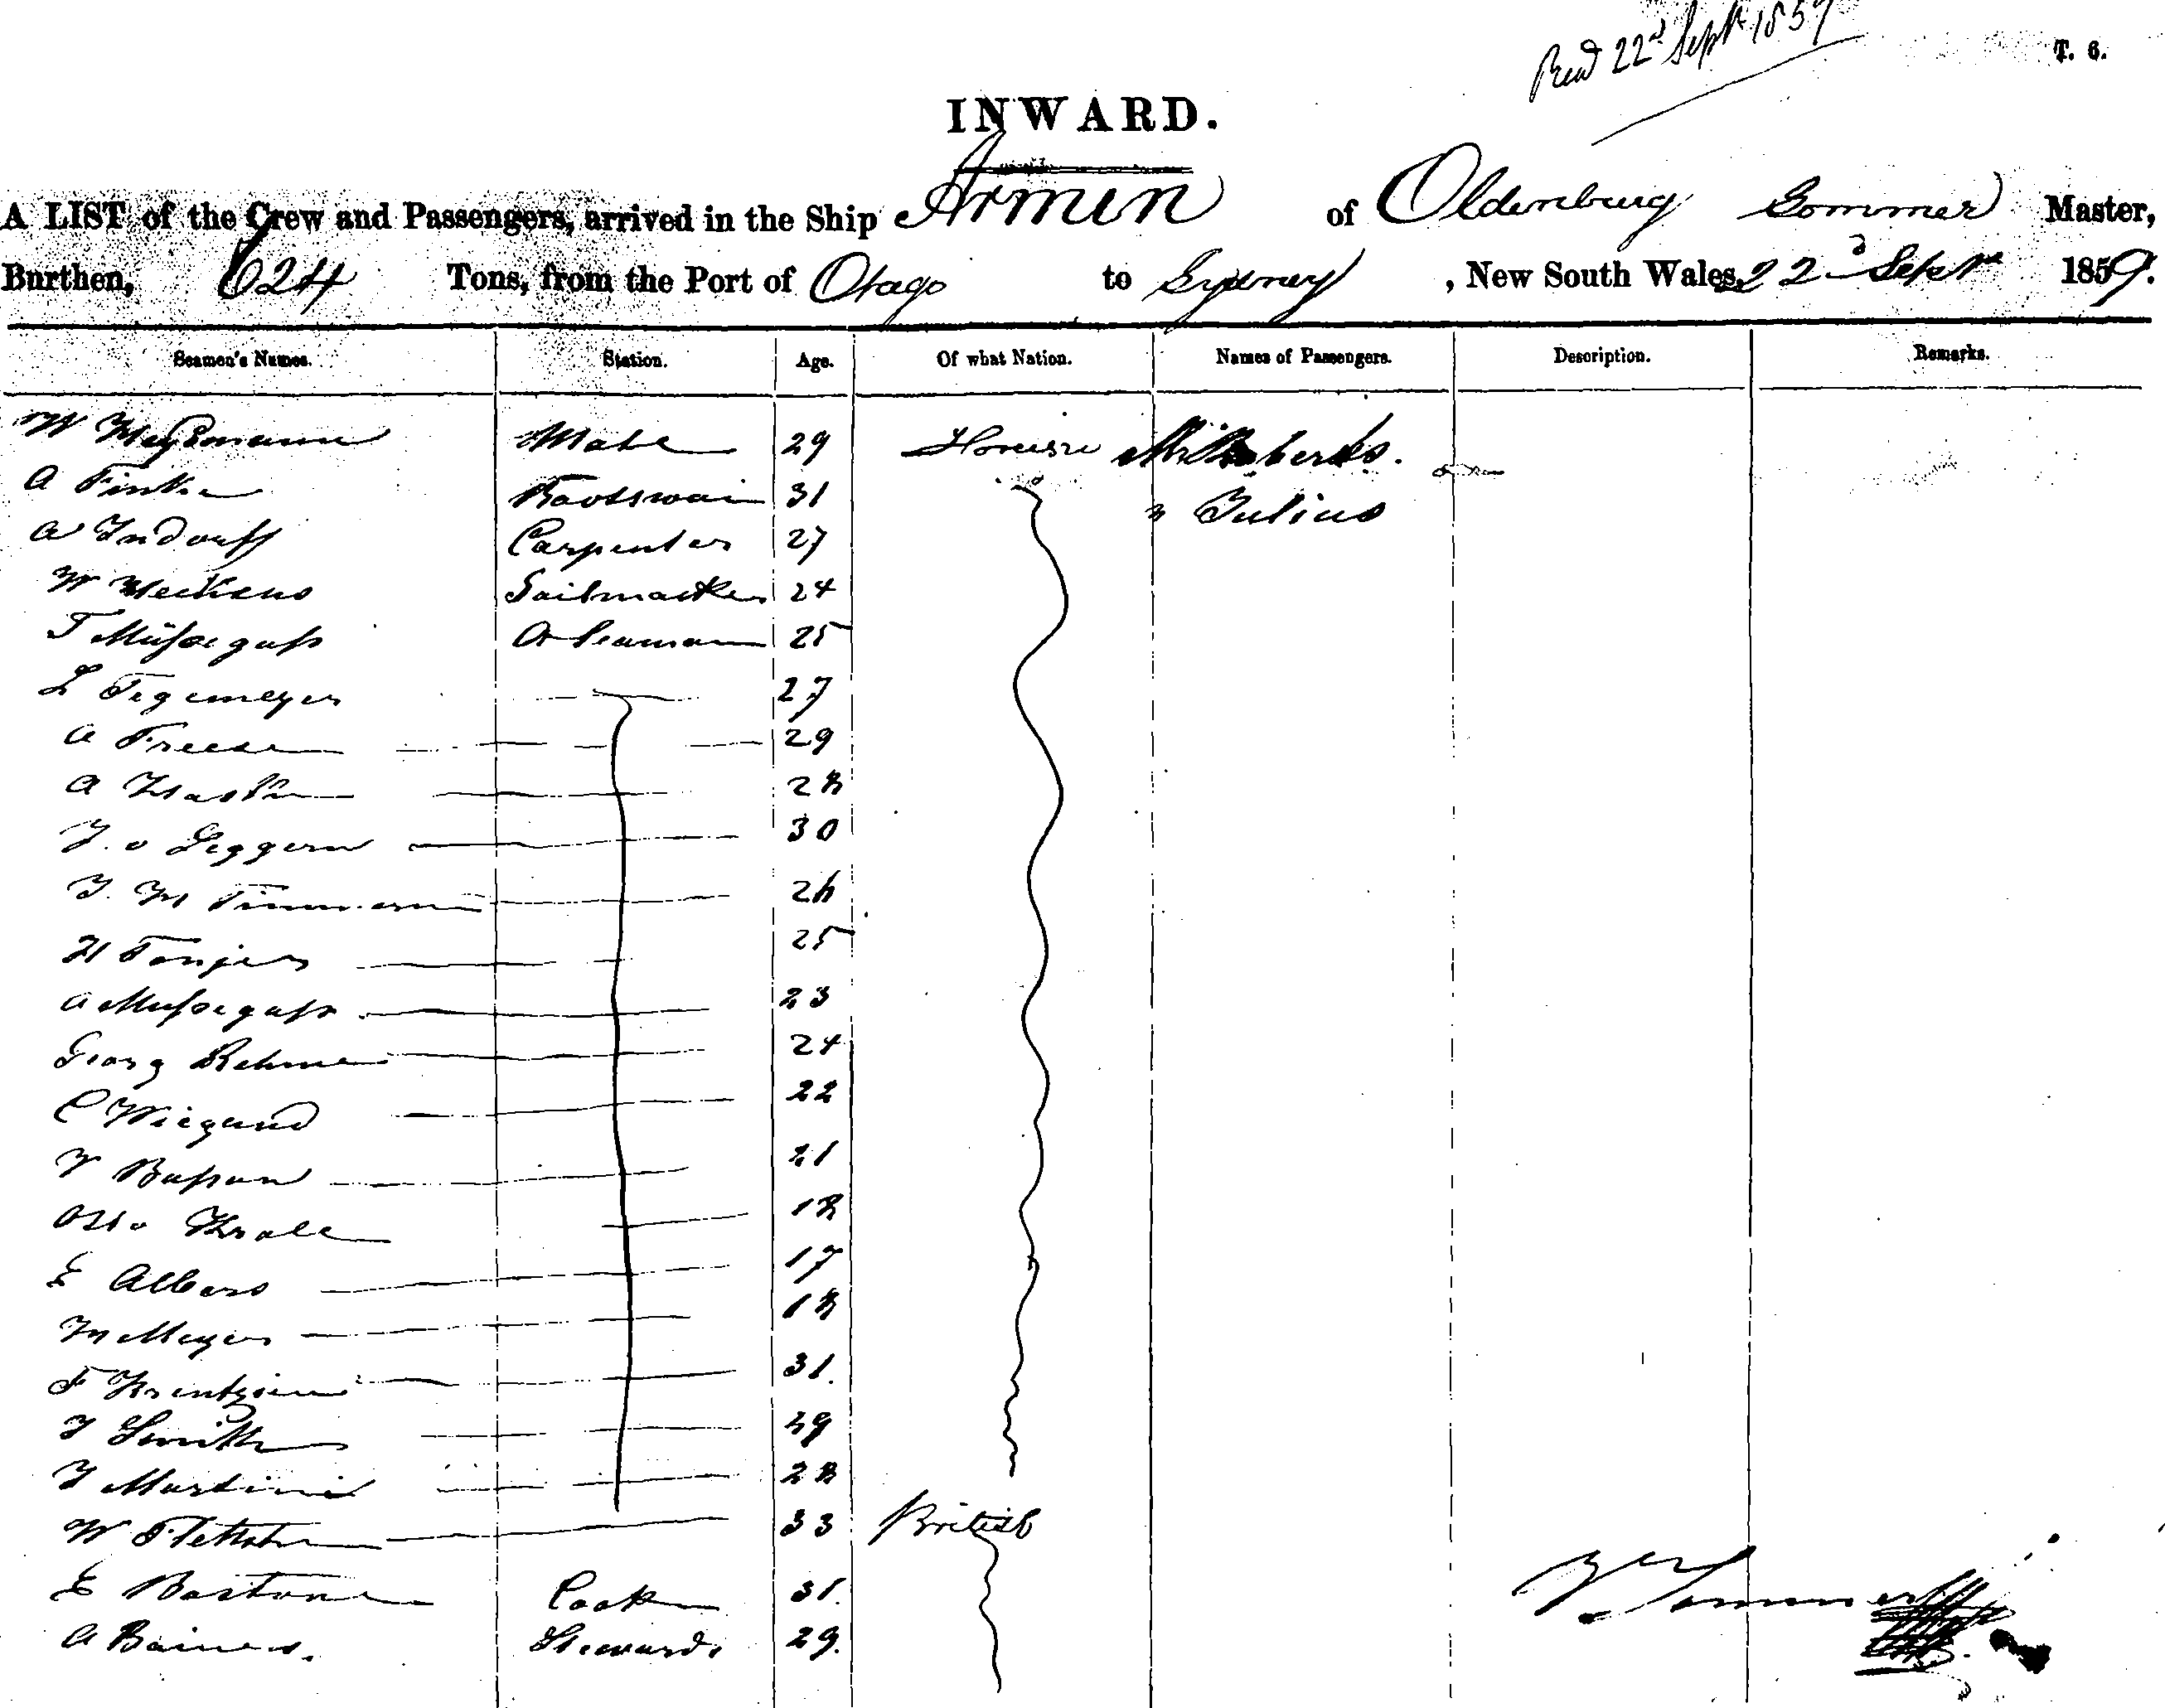 22d Sept 1859
T. 6.
INWARD.
A LIST of the Crew and Passengers, arrived in the Ship Armin of Oldenburg Sommer Master,
Burthen, 624 Tons, from the Port of Otago to Sydney, New South Wales, 22d Sept 1859.
Seamen's Names. Station. Age. Of what Nation. Names of Passengers. Description. Remarks.
W Mate 29 Mr Roberts.
A Finke Bootswain 31 " Julius
A Indorff Carpenter 27
W Meckens Sailmacker 24
T Müssegass A Seaman 25
L Tegemeyer 27
A Freese 29
A 28
J. v Seggern 30
J. H Timmerm 26
H Tonjes 25
A Mussegass 23
Georg Behme 24
C Wiegand 22
Bussan 21
Otto Krall 18
E Albers 17
Meyer 18
F 31.
J Smith 39
J Martini 28
W 33 British
E Bastone Cook 31.
A Baines. Steward. 29.
Sommer